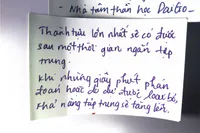 - Nhà tâm thần học DaCo-
Thành tựu lớn nhất sẽ có được
sau một thời gian ngắn tập
trung.
Khi những giây phút phán
đoán hoặc do dự được loại bỏ,
khả năng tập trung sẽ tăng lên.